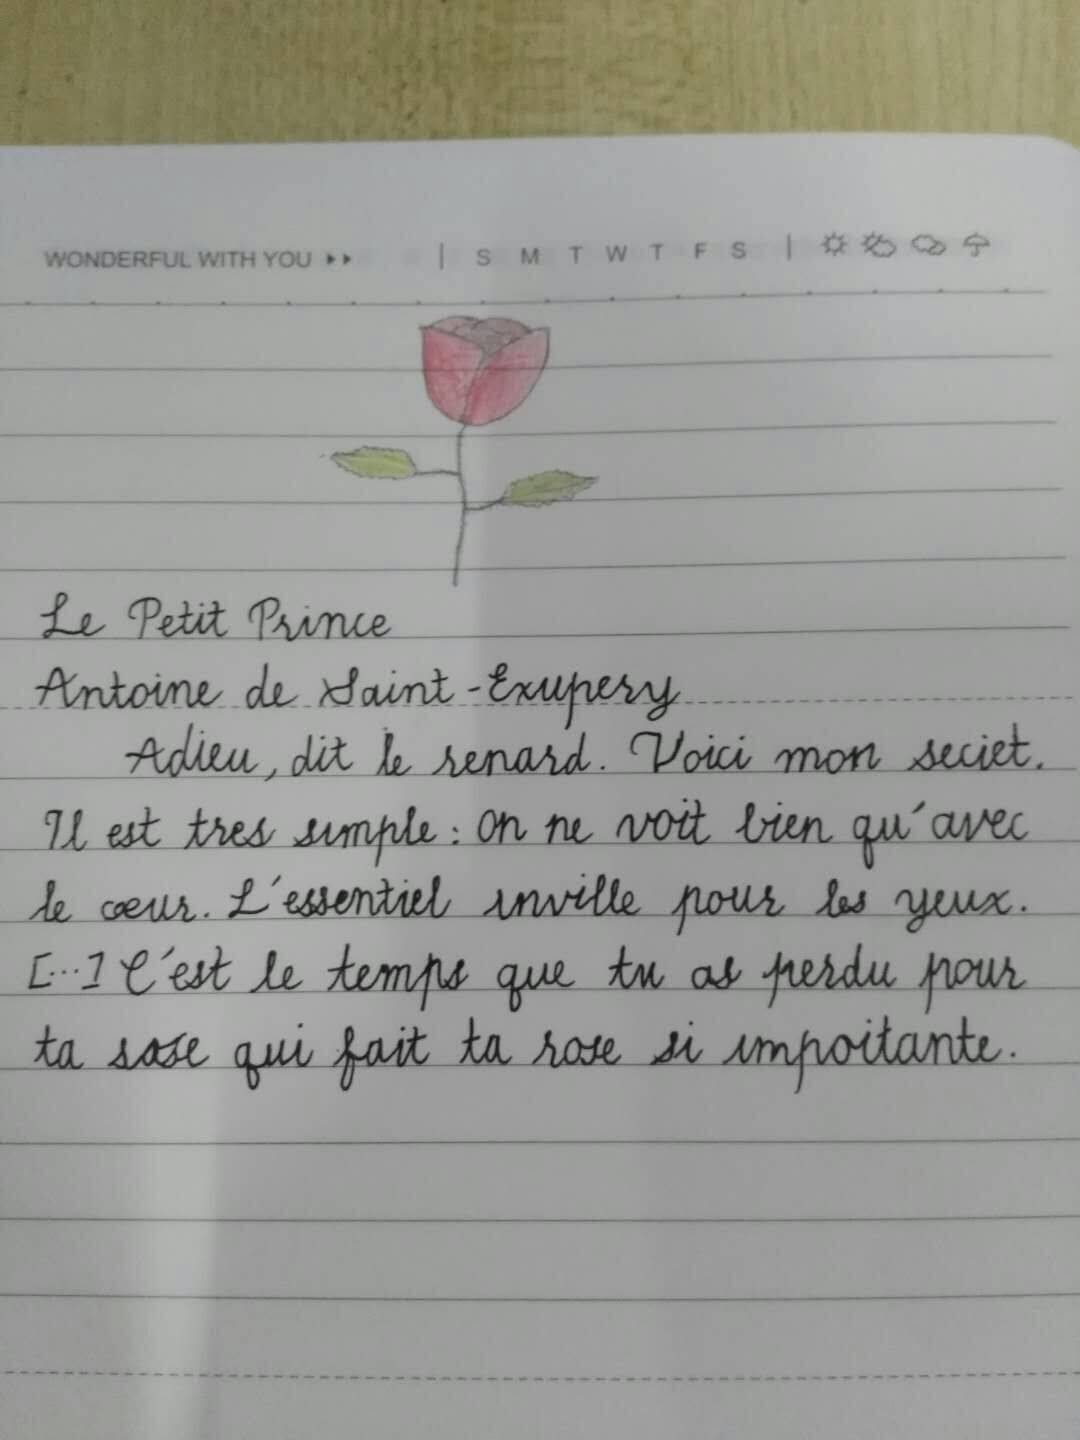 WONDERFUL WITH YOU | S M T W T F S |
Le Petit Prince
Antoine de Saint-Exupery
Adieu, dit le renard. Voici mon seciet.
Il est tres simple : on ne voit bien qu'avec
le cœur. L'essentiel inville pour les yeux.
[...] C'est le temps que tu as perdu pour
ta sose qui fait ta rose si impoitante.